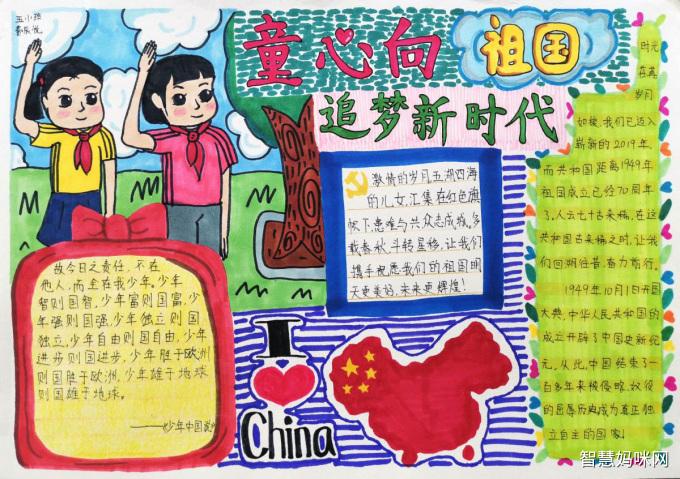 五小班
童心向
祖国
追梦新时代
激情的岁月五湖四海
的儿女,汇集在红色旗
帜下,患难与共众志成城。多
载春秋,斗转星移,让我们
携手祝愿我们的祖国明
天更美好,未来更辉煌!
故今日之责任,不在
他人,而全在我少年。少年
智则国智,少年富则国富,少
年强则国强,少年独立则国
独立,少年自由则国自由,少年
进步则国进步,少年胜于欧洲
则国胜于欧洲,少年雄于地球
则国雄于地球。
——《少年中国说》
I
China
时光
荏苒
岁月
如梭,我们已迈入
崭新的2019年,
而共和国距离1949年
祖国成立已经70周年
了。人云七十古来稀,在这
共和国古来稀之时,让我
们回朔往昔,奋力前行。
1949年10月1日开国
大典,中华人民共和国的
成立开辟了中国史新纪
元。从此,中国结束了一
百多年来被侵略、奴役
的屈辱历史成为真正独
立自主的国家!
智慧妈咪网